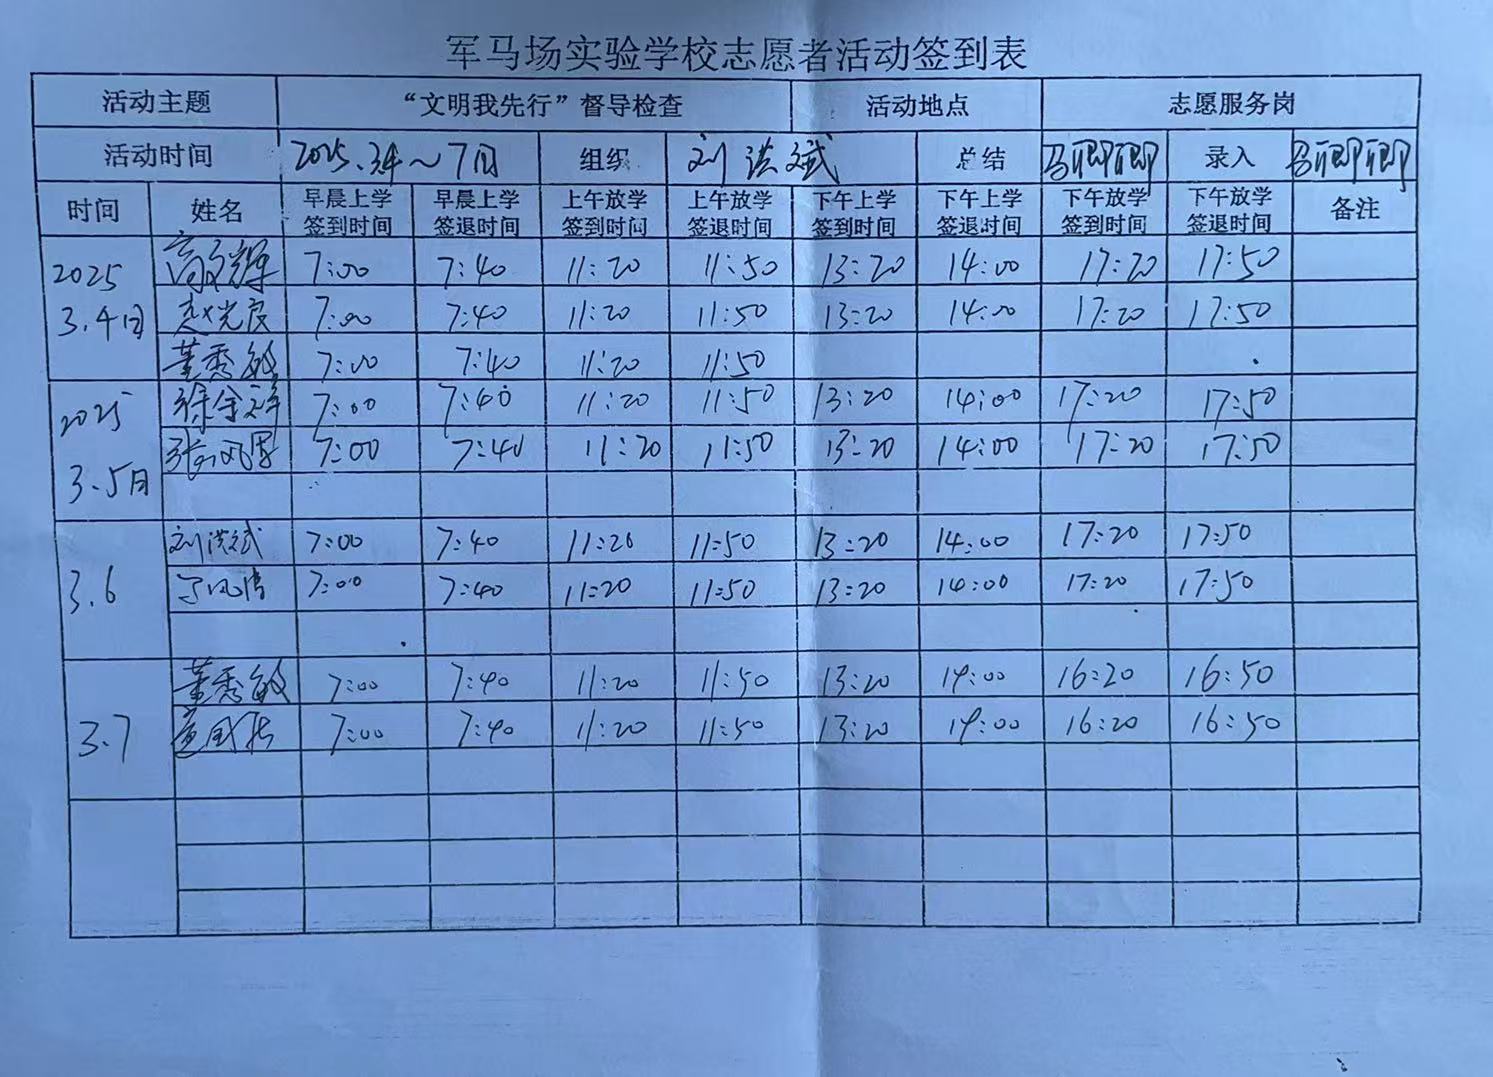 军马场实验学校志愿者活动签到表
活动主题 “文明我先行”督导检查 活动地点 志愿服务岗
活动时间 2025.3.4～7日 组织 刘洪斌 总结 马卿卿 录入 马卿卿
时间 姓名 早晨上学签到时间 早晨上学签退时间 上午放学签到时间 上午放学签退时间 下午上学签到时间 下午上学签退时间 下午放学签到时间 下午放学签退时间 备注
2025 3.4日 高文辉 7:00 7:40 11:20 11:50 13:20 14:00 17:20 17:50
赵光良 7:00 7:40 11:20 11:50 13:20 14:00 17:20 17:50
董秀敏 7:00 7:40 11:20 11:50
2025 3.5日 徐金祥 7:00 7:40 11:20 11:50 13:20 14:00 17:20 17:50
7:00 7:40 11:20 11:50 13:20 14:00 17:20 17:50
3.6 刘洪斌 7:00 7:40 11:20 11:50 13:20 14:00 17:20 17:50
7:00 7:40 11:20 11:50 13:20 14:00 17:20 17:50
3.7 董秀敏 7:00 7:40 11:20 11:50 13:20 14:00 16:20 16:50
7:00 7:40 11:20 11:50 13:20 14:00 16:20 16:50